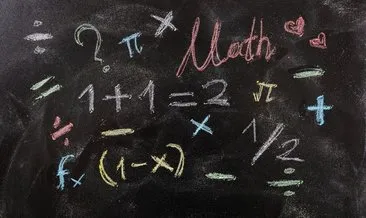 ÷ ? π × Math
= 1+1=2 π −
÷ − × 1/2 +
fx (1-x) − ÷